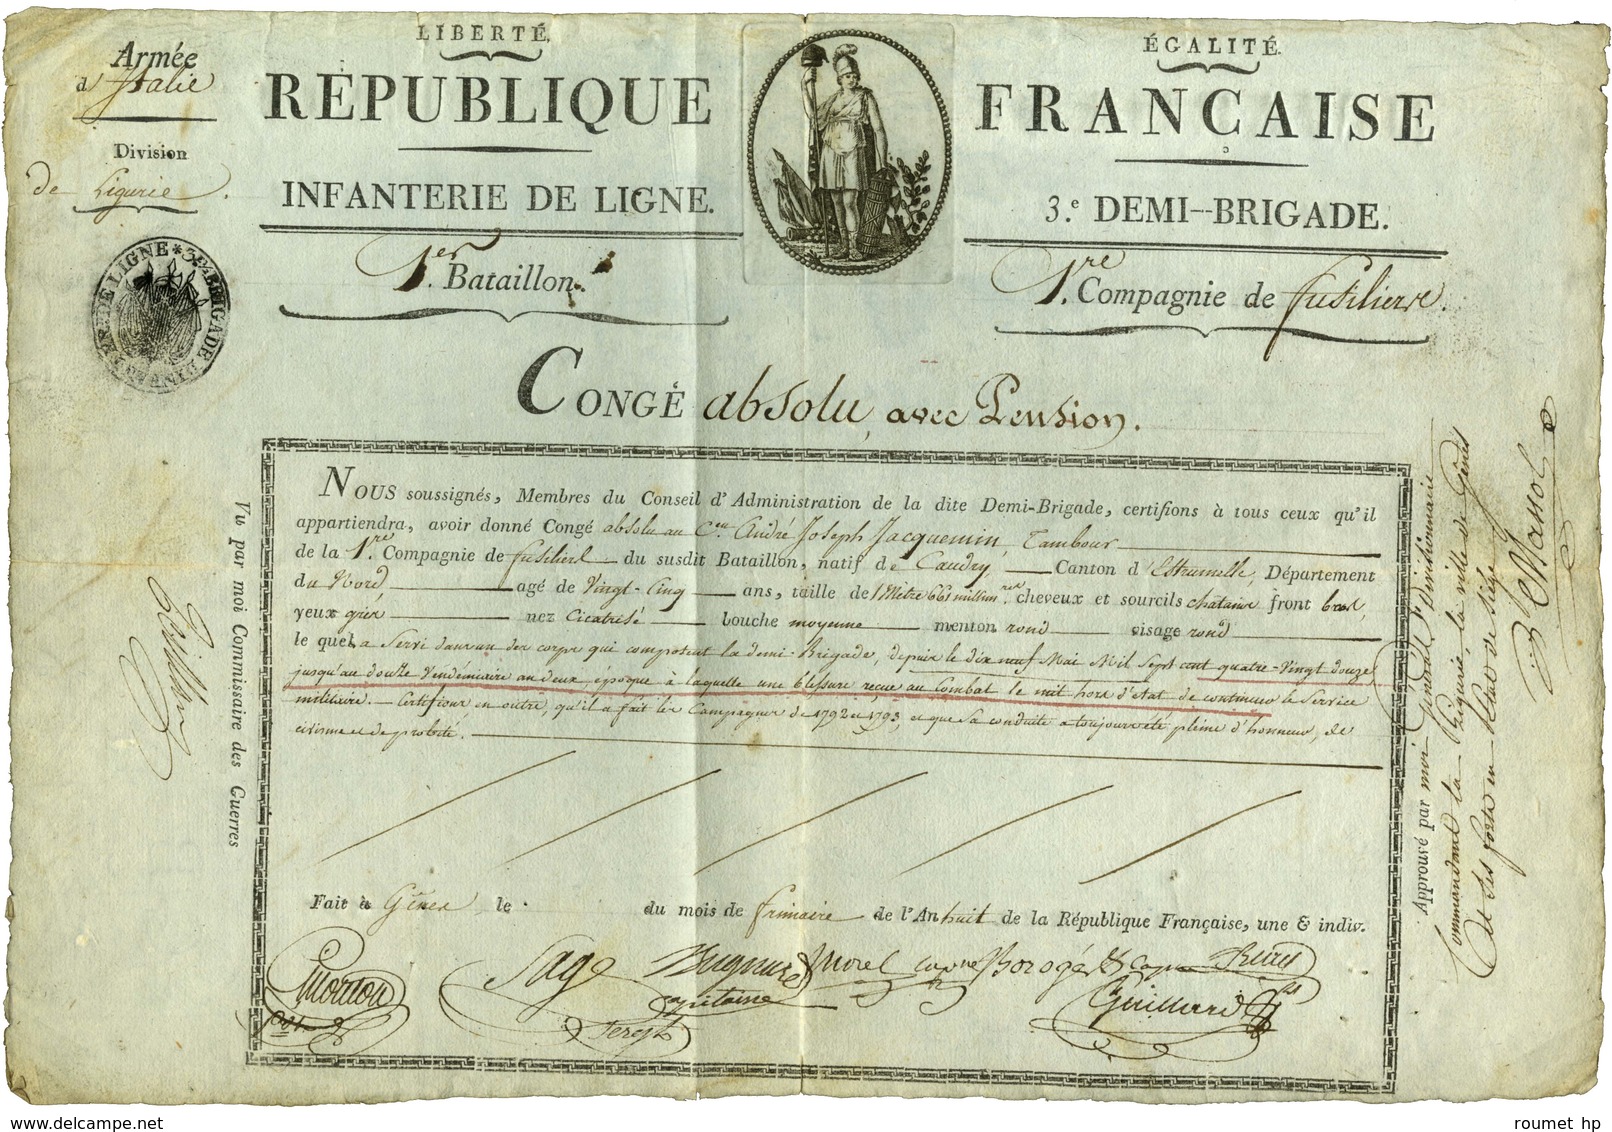 Armée
d'Italie
Division
de Ligurie.
LIBERTÉ.
ÉGALITÉ.
RÉPUBLIQUE FRANÇAISE
INFANTERIE DE LIGNE.
3.e DEMI-BRIGADE.
1.er Bataillon.
1.re Compagnie de fusiliers.
CONGÉ absolu, avec Pension.
NOUS soussignés, Membres du Conseil d'Administration de la dite Demi-Brigade, certifions à tous ceux qu'il
appartiendra, avoir donné Congé absolu au C.en André Joseph Jacquemin, Tambour
de la 1.re Compagnie de fusiliers du susdit Bataillon, natif de Caudry, Canton d'Estrumelle, Département
du Nord, agé de Vingt-Cinq ans, taille de 1 Mètre 661 millim.res cheveux et sourcils chatains front bas,
yeux gris nez Cicatrisé bouche moyenne menton rond visage rond
le quel a Servi dans un des corps qui composent la demi-Brigade, depuis le dix neuf Mai Mil Sept cent quatre-Vingt douze
jusqu'au douze Vendémiaire an deux, époque à laquelle une blessure reçue au Combat le mit hors d'état de continuer le Service
militaire. Certifions en outre, qu'il a fait les Campagnes de 1792 et 1793, et que sa conduite a toujours été pleine d'honneur, de
civisme et de probité.
Fait à Gênes le du mois de frimaire de l'An huit de la République Française, une & indiv.
Sage
Morel
capitaine
Guillard
Vu par moi Commissaire des Guerres
Approuvé par moi Général Divisionnaire
Commandant la Ligurie, la ville de Gênes
et ses forts en état de siège
roumet hp